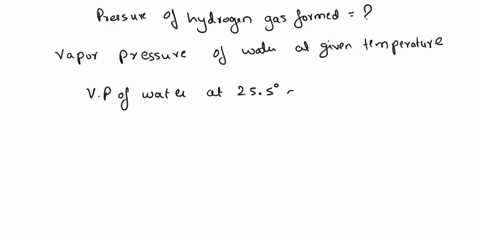 Pressure of hydrogen gas formed = ?
Vapor pressure of water at given temperature
V.P of water at 25.5°